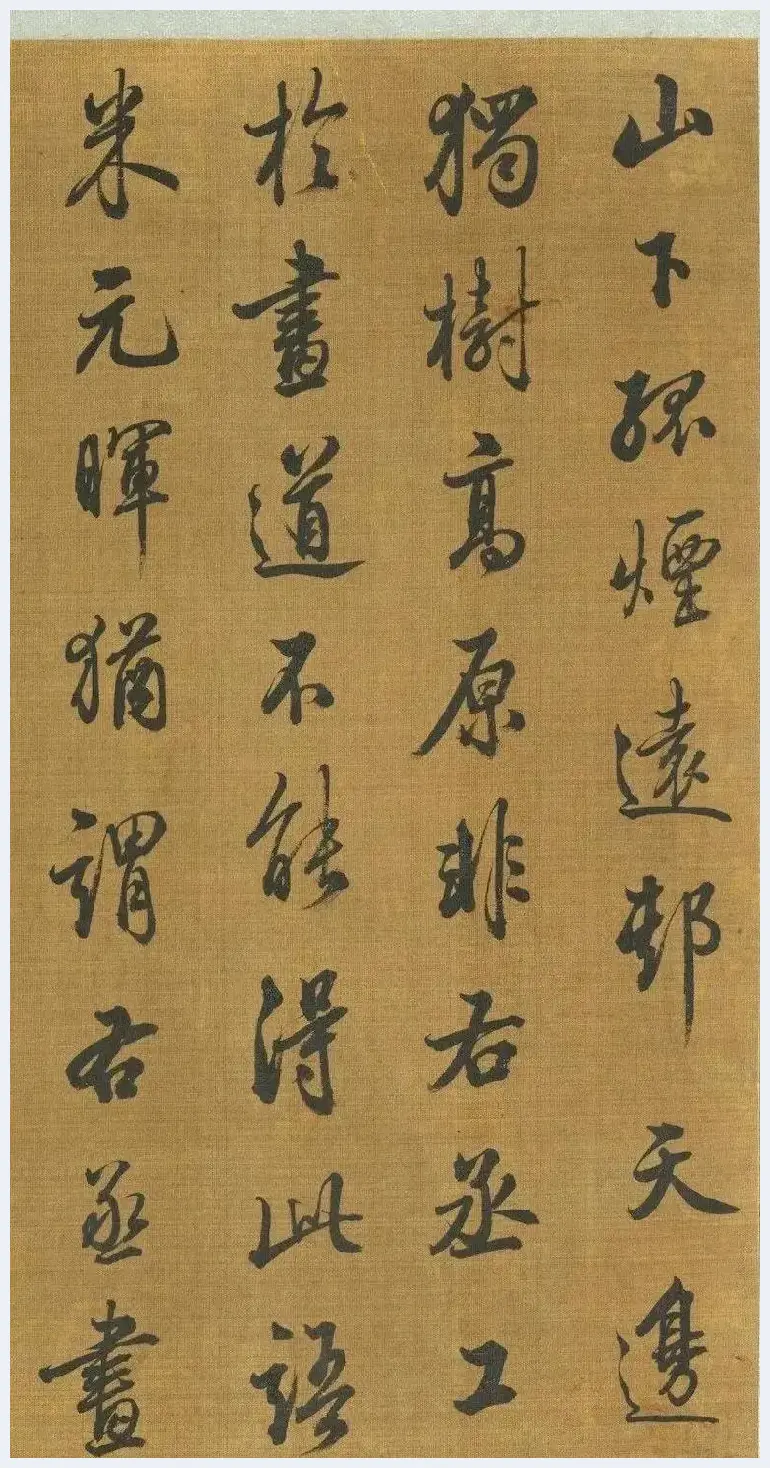 山下孤煙遠邨天邊
獨樹高原非右丞工
於畫道不能得此語
米元暉猶謂右丞畫